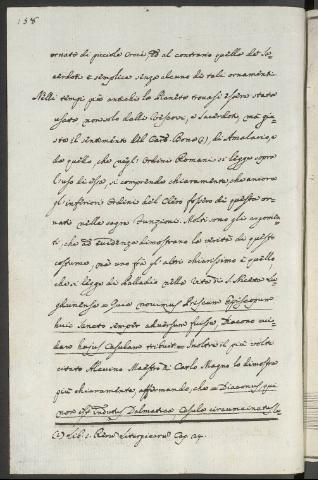 158
ornato di piccole Croci, ed al contrario quello de' Sa-
cerdoti è semplice senza alcuno di tali ornamenti
Nelli tempi più antichi la Pianeta trovasi essere stata
usata non solo dalli Vescovi, e Sacerdoti, ma giu-
sto il sentimento del Card. Bona (a), di Amalario, e
da quello che negl'Ordini Romani si legge sopra
l'uso di essa, si comprende chiaramente, che ancora
gl'inferiori Ordini del Clero fossero di questa or-
nati nelle sagre funzioni. Molti sono gli argomen-
ti, che ad evidenza dimostrano la verità di questo
costume, ma uno fra gl'altri chiarissimo è quello,
che si legge da Palladio nella Vita di S. Niceta
= Quia novimus Priscum Episcopum
huic Sancto semper adversum fuisse, Diacono
Casulam tribuit = Inoltre il più volte
citato Alcuino Maestro di Carlo Magno lo dimostra
più chiaramente, affermando, che = Diaconus, qui
non est indutus Dalmatica Casula circumcinctus
(a) Lib. 1. Rerum Liturgicarum Cap. 24.